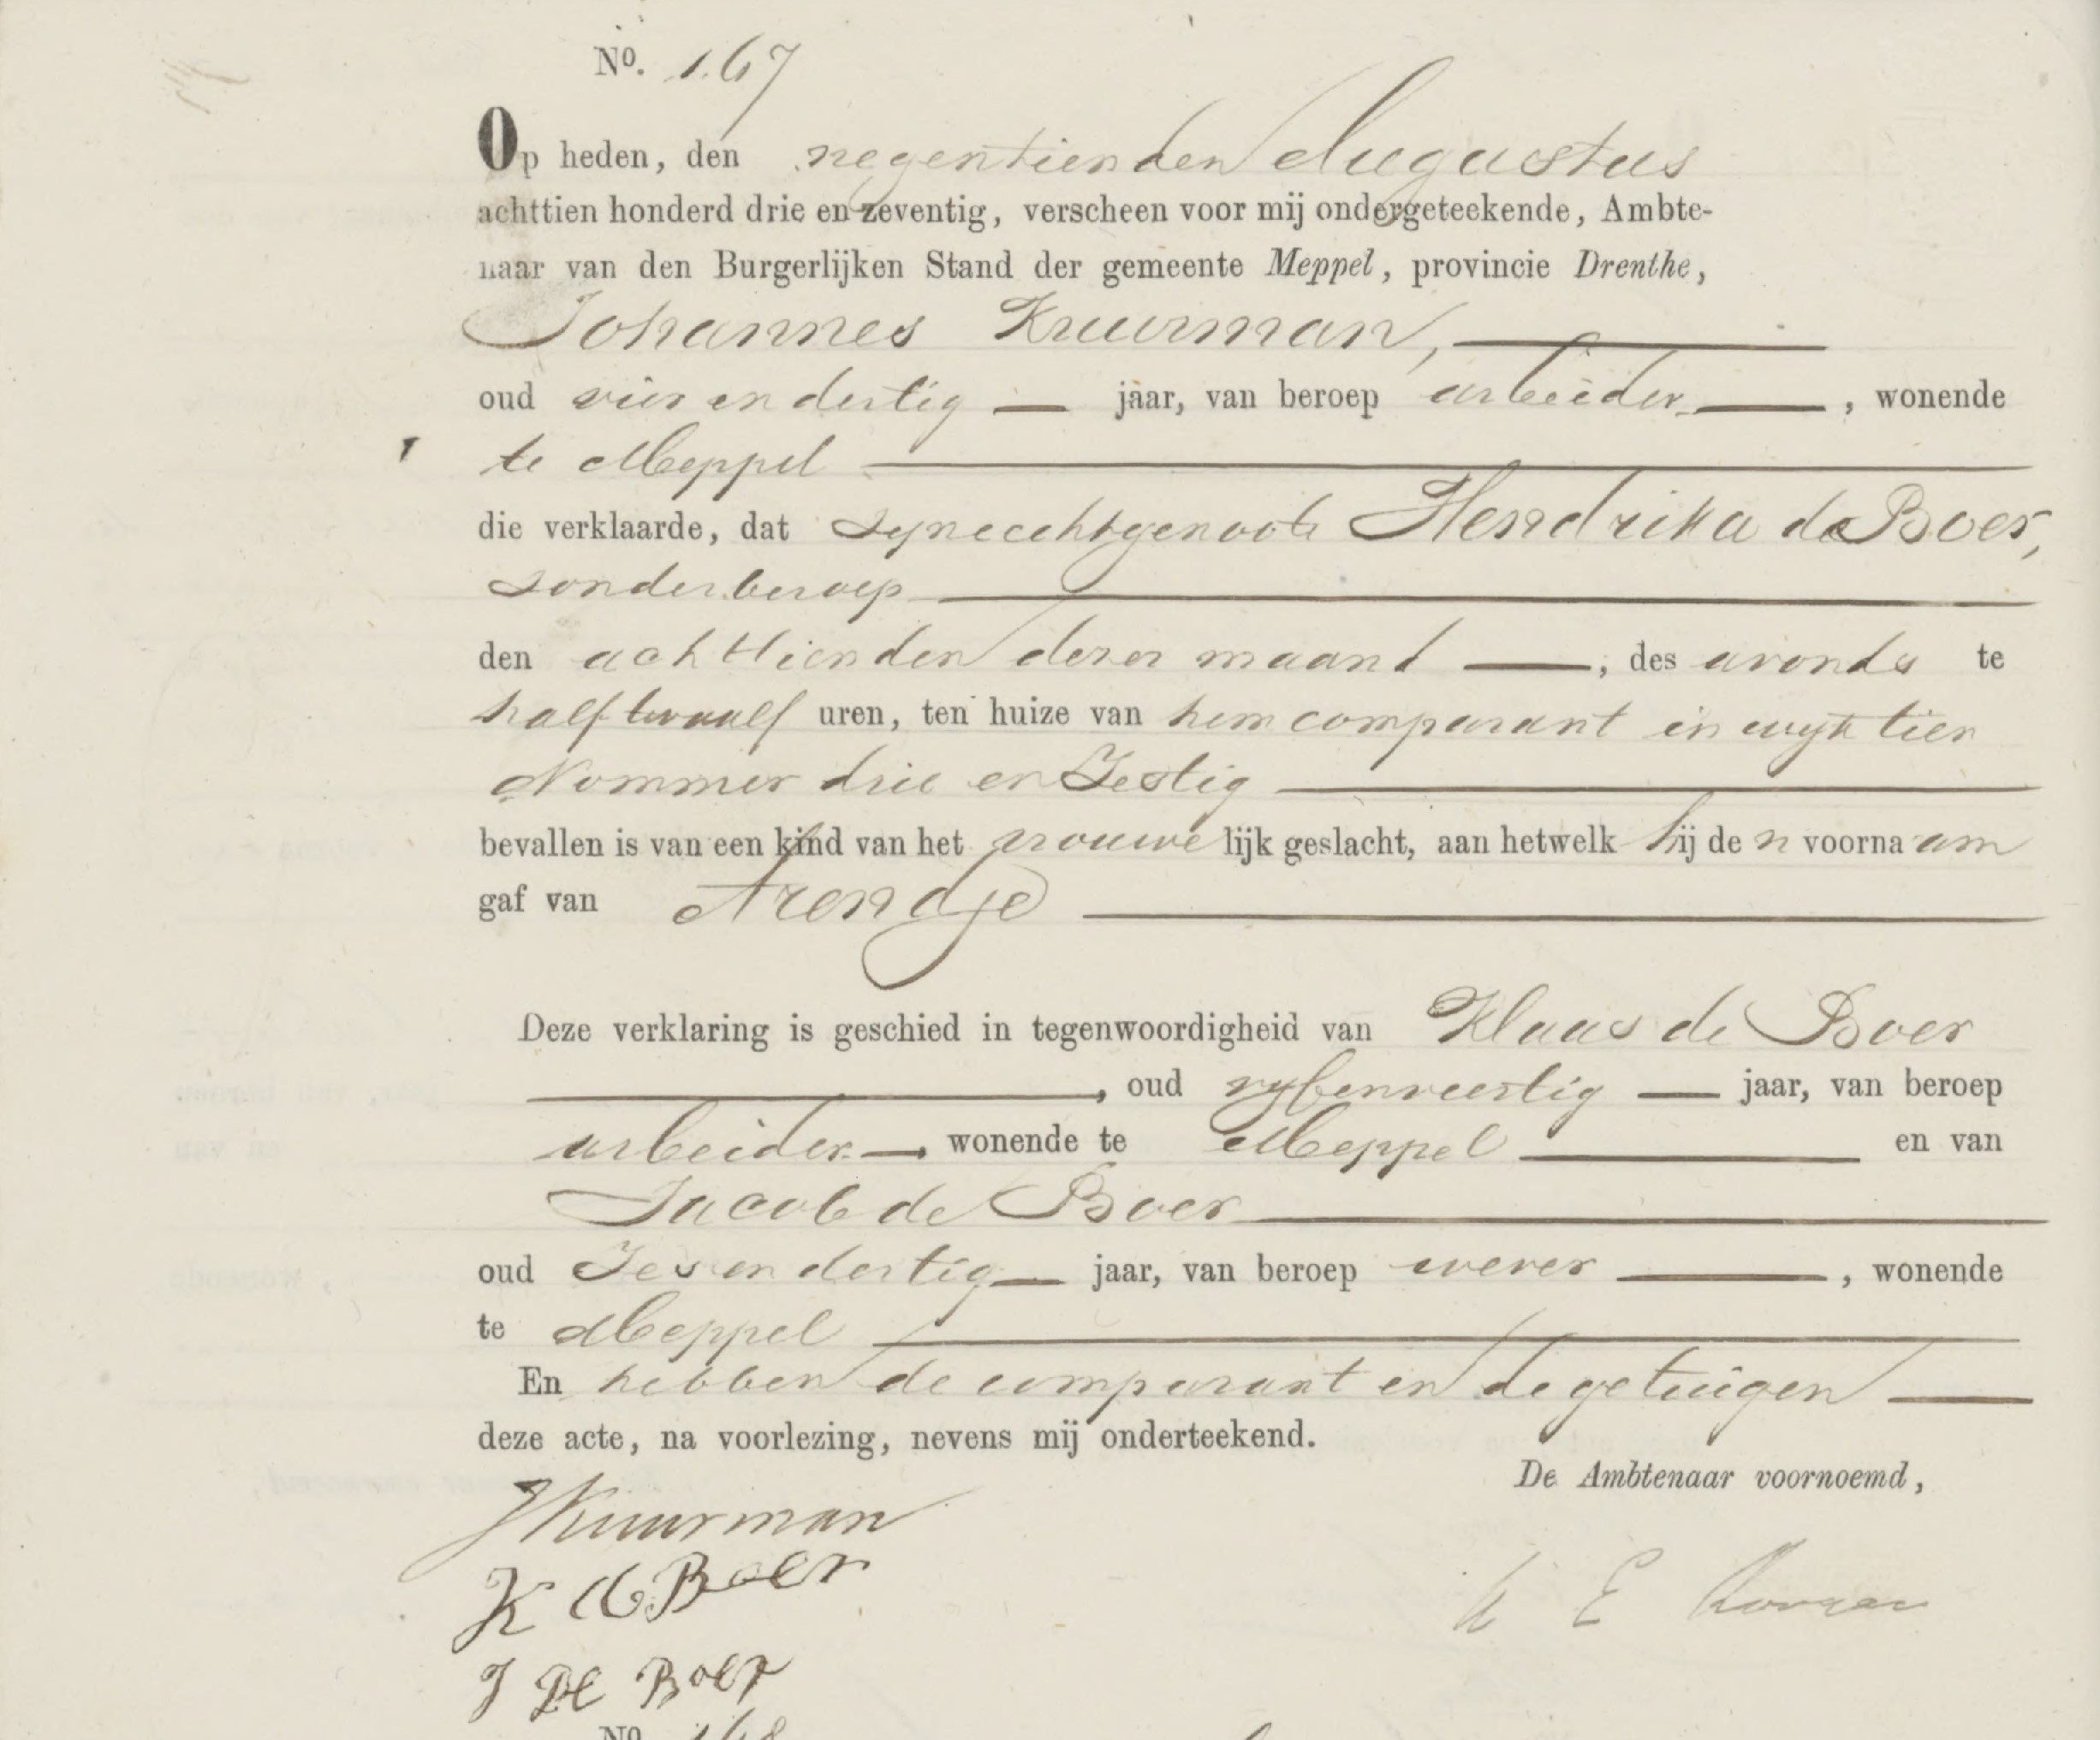 No. 167
Op heden, den negentienden Augustus
achttien honderd drie en zeventig, verscheen voor mij ondergeteekende, Ambte-
naar van den Burgerlijken Stand der gemeente Meppel, provincie Drenthe,
Johannes Kruurman,
oud vier en dertig jaar, van beroep arbeider, wonende
te Meppel
die verklaarde, dat zyne echtgenoote Hendrika de Boer,
zonder beroep
den achttienden dezer maand, des avonds te
half twaalf uren, ten huize van hem comparant in wyk tien
Nommer drie en Zestig
bevallen is van een kind van het vrouwelijk geslacht, aan hetwelk hij den voornaam
gaf van Arendje
Deze verklaring is geschied in tegenwoordigheid van Klaas de Boer
, oud vyfenveertig jaar, van beroep
arbeider, wonende te Meppel en van
Jacob de Boer
oud Zes en dertig jaar, van beroep wever, wonende
te Meppel
En hebben de comparant en de getuigen
deze acte, na voorlezing, nevens mij onderteekend.
De Ambtenaar voornoemd,
K d Boer
J De Boer
No. 168